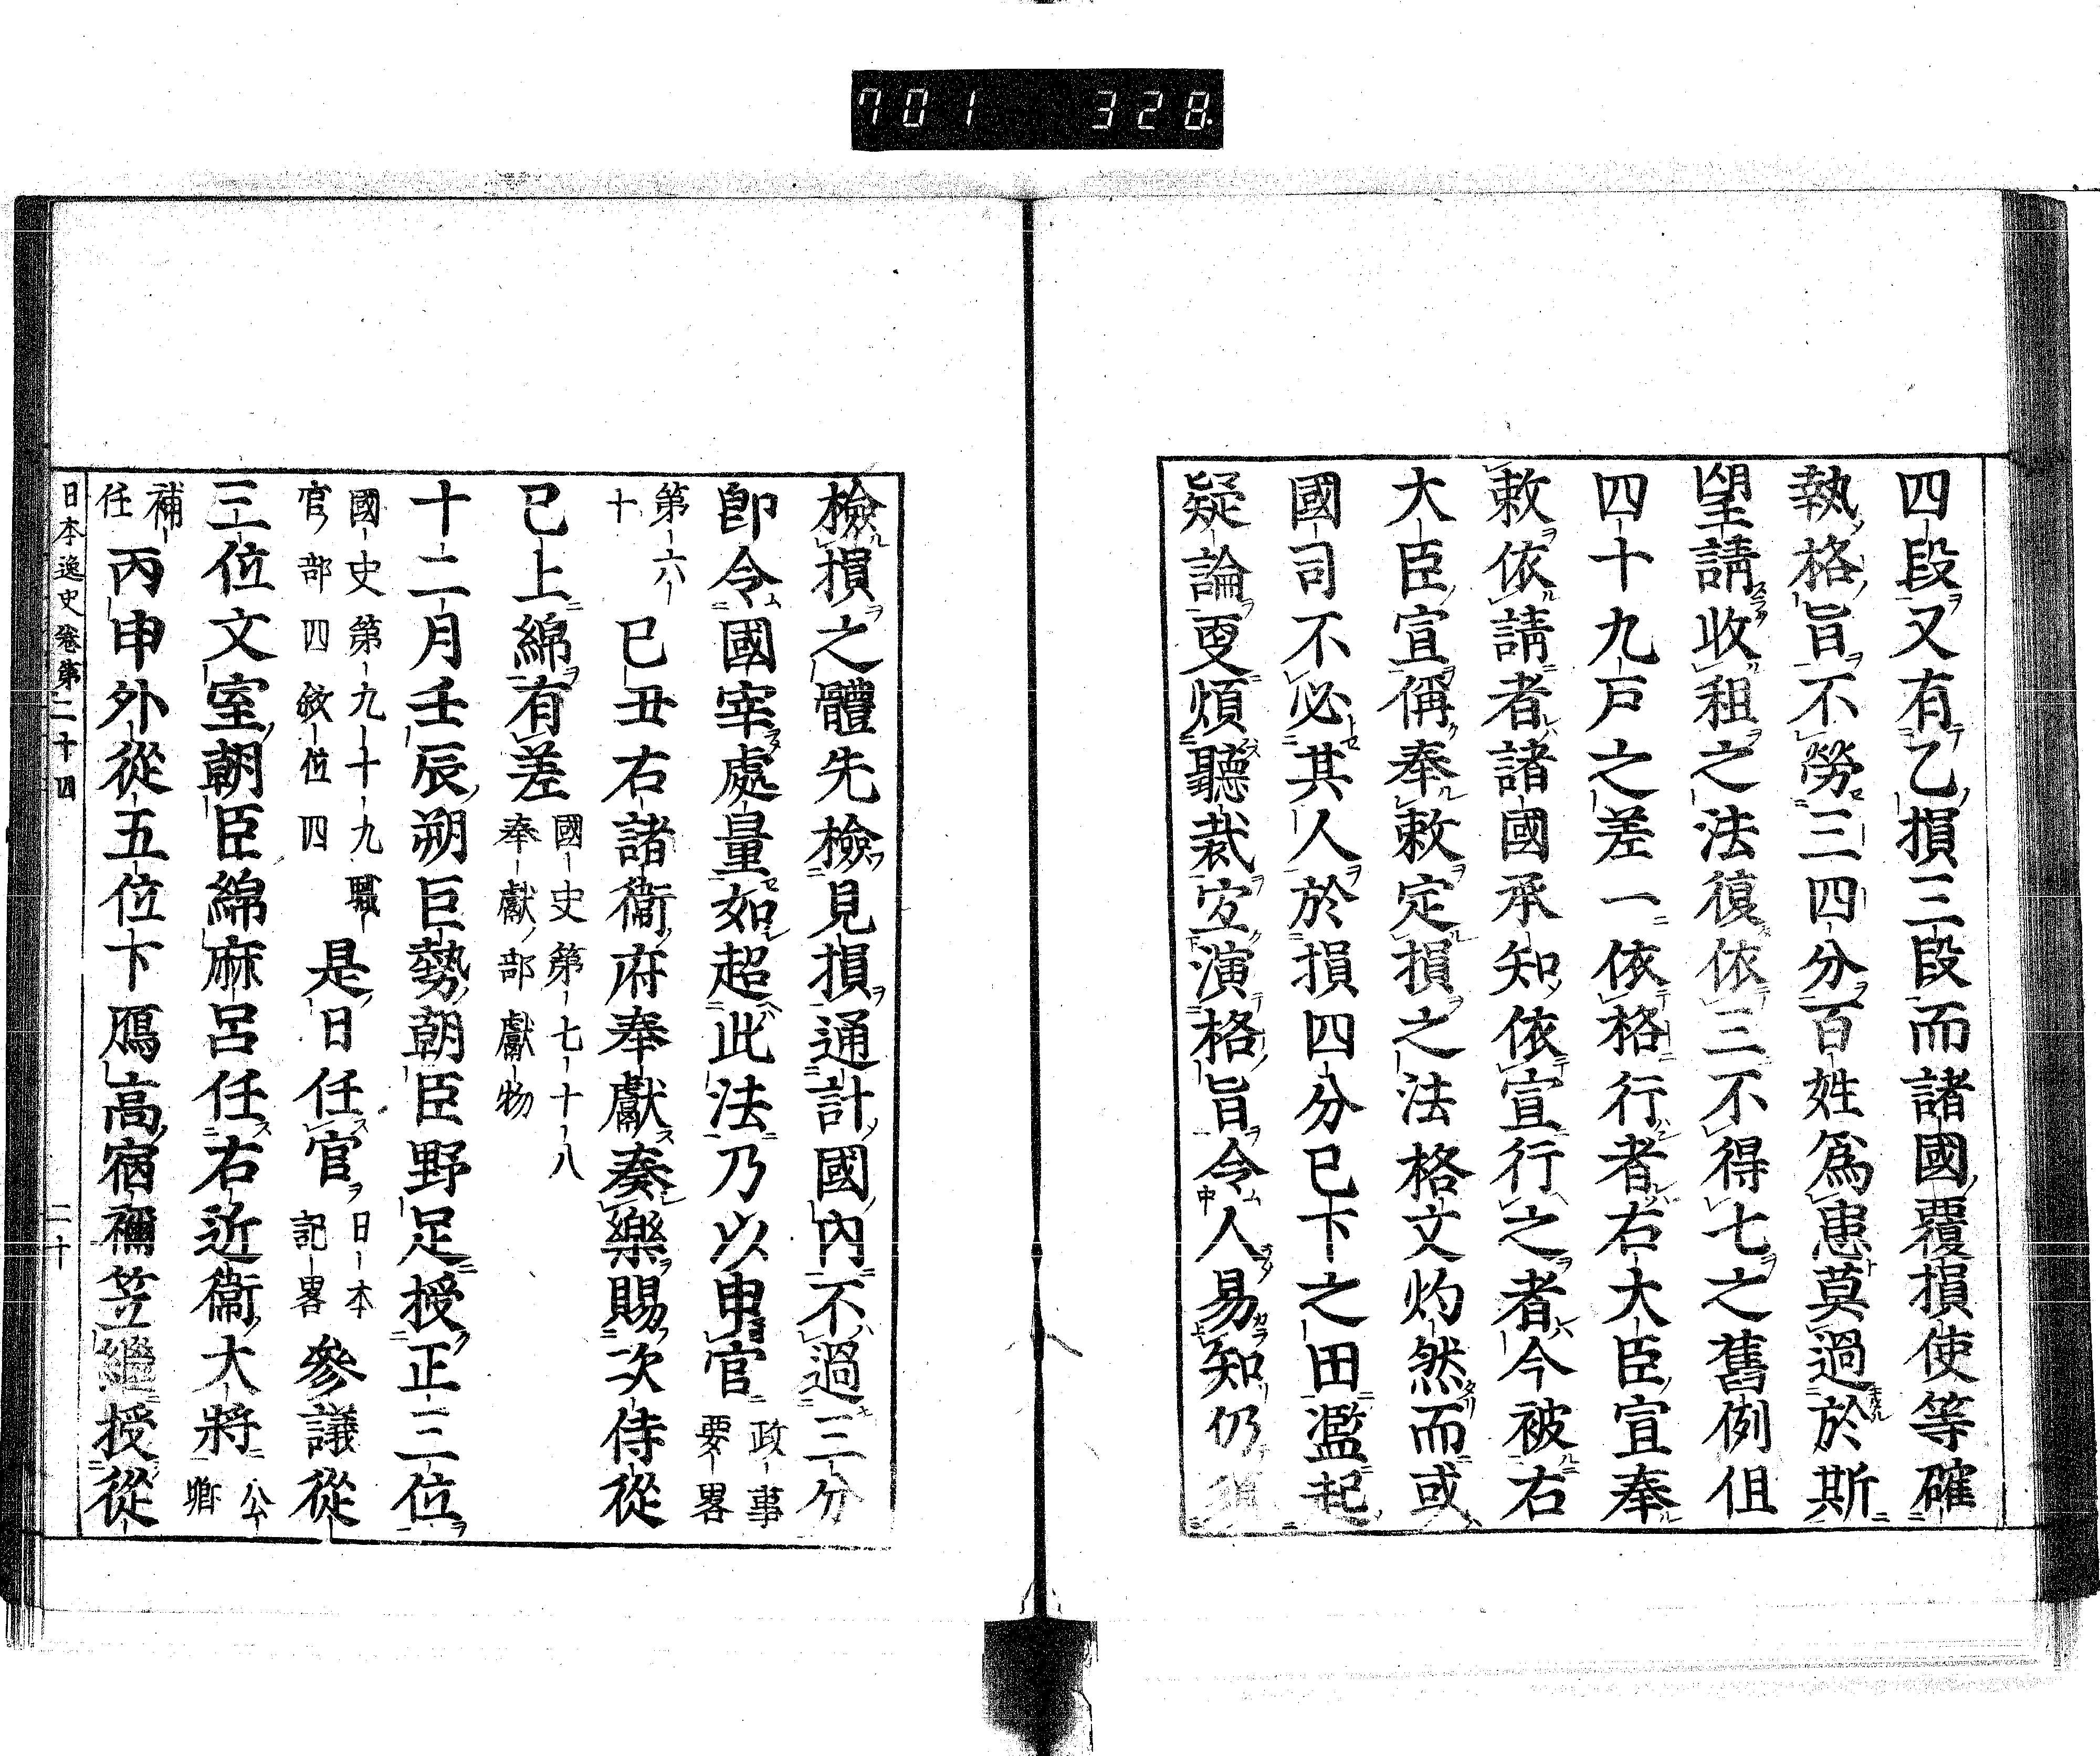 701 328
四段又有乙損三段而諸國覆損使等確
執格旨不勞三四分百姓爲患莫過於斯
望請收租之法復依三不得七之舊例但
四十九戸之差一依格行者右大臣宣奉
敕依請者諸國承知依宣行之者今被右
大臣宣偁奉敕定損之法格文灼然而或
國司不必其人於損四分已下之田濫起
疑論更煩聽裁宜演格旨令人易知仍
檢損之體先檢見損通計國內不過三分
卽令國宰處量如超此法乃以申官 政事要畧
第六十 己丑右諸衞府奉獻奏樂賜次侍從
已上綿有差 國史第七十八奉獻部獻物
十二月壬辰朔巨勢朝臣野足授正三位
國史第九十九職官部四敘位四 是日任官 日本記畧 參議從
三位文室朝臣綿麻呂任右近衞大將 公卿
補任 丙申外從五位下鴈高宿禰笠繼授從
日本逸史卷第二十四 二十